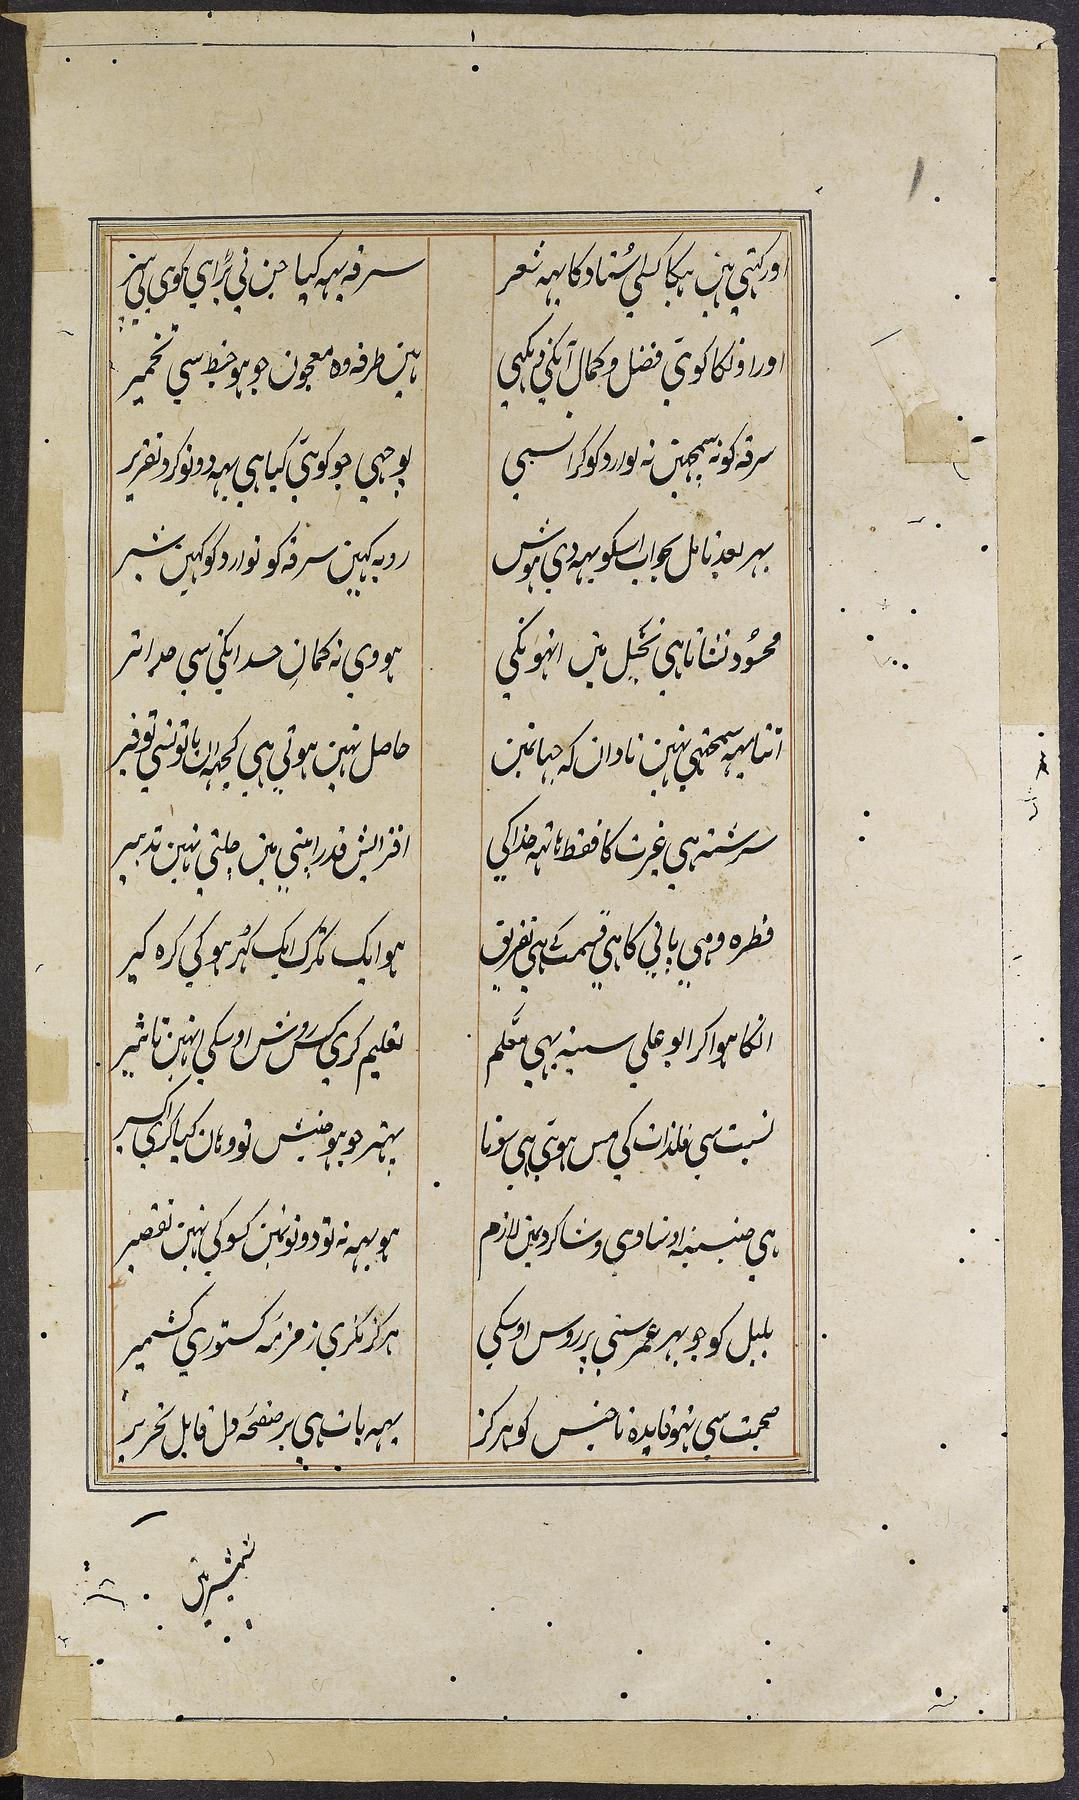 اور کہتی ہین ہیکا کسی اُستاد کا یہہ شعر
سرقہ یہہ کیا جن نی بڑا ہی کوی
اور اونکا کوئی فضل و کمال آنکی دیکہی
ہین طرفہ وہ معجون جو ہو خبط سی تخمیر
سرقہ کو نہ سمجہین نہ توارد کو کر
پوجہی جو کوئی کیا ہی یہہ دونو کرو تقریر
پہر بعد تامل بجواب اسکو یہہ دی ہوش
روبہ کہین سرقہ کو توارد کو کہین شیر
محسُود نتنا تا ہی تخَیل مین انہونکی
ہووی نہ کمانِ حسد انکی سی
اتنا یہہ سمجہتی نہین نادان کہ جہانمین
حاصل نہین ہوتی ہی کچہہ ان باتونسی توقیر
سررشتہ ہی عزت کا فقط ہاتہہ خدا کی
افزایش قدر اپنی مین چلتی نہین تدبیر
قطرہ وہی پانی کا ہی قسمت کے ہی تفریق
ہو ایک تکرک ایک کُہر ہو کی کرہ کیر
انکا ہوا کر ابو علی سینہ بہی معَلم
تعلیم کری کس روش اوسکی انہین تاثیر
نسبت سی فلذات کی مس ہوتی ہی سونا
پہتر جو ہو جنبش تو وہان کیا کری اکسیر
ہی جنسیتہ اوستاد و شاکرد مین لازم
ہو یہہ نہ تو دونونمین کسو کی نہین تقصیر
بلبل کو جو پہر عمر سنی پر روس اوسکی
ہرکز نکری زمزمَہ کستوری کشمیر
صحبت سی نہو فایدہ ناجنس کو ہرکز
یہہ بات ہی بر صفحَہ دل قابل تحریر